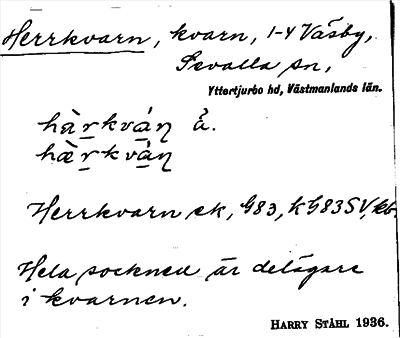 Herrkvarn, kvarn, 1-4 Väsby,
Sevalla sn,
Yttertjurbo hd, Västmanlands län.
hàrkván å.
hæ̀rkvàn
Herrkvarn ek, G83, kG83SV, kb.
Hela socknen är delägare
i kvarnen.
HARRY STÅHL 1936.